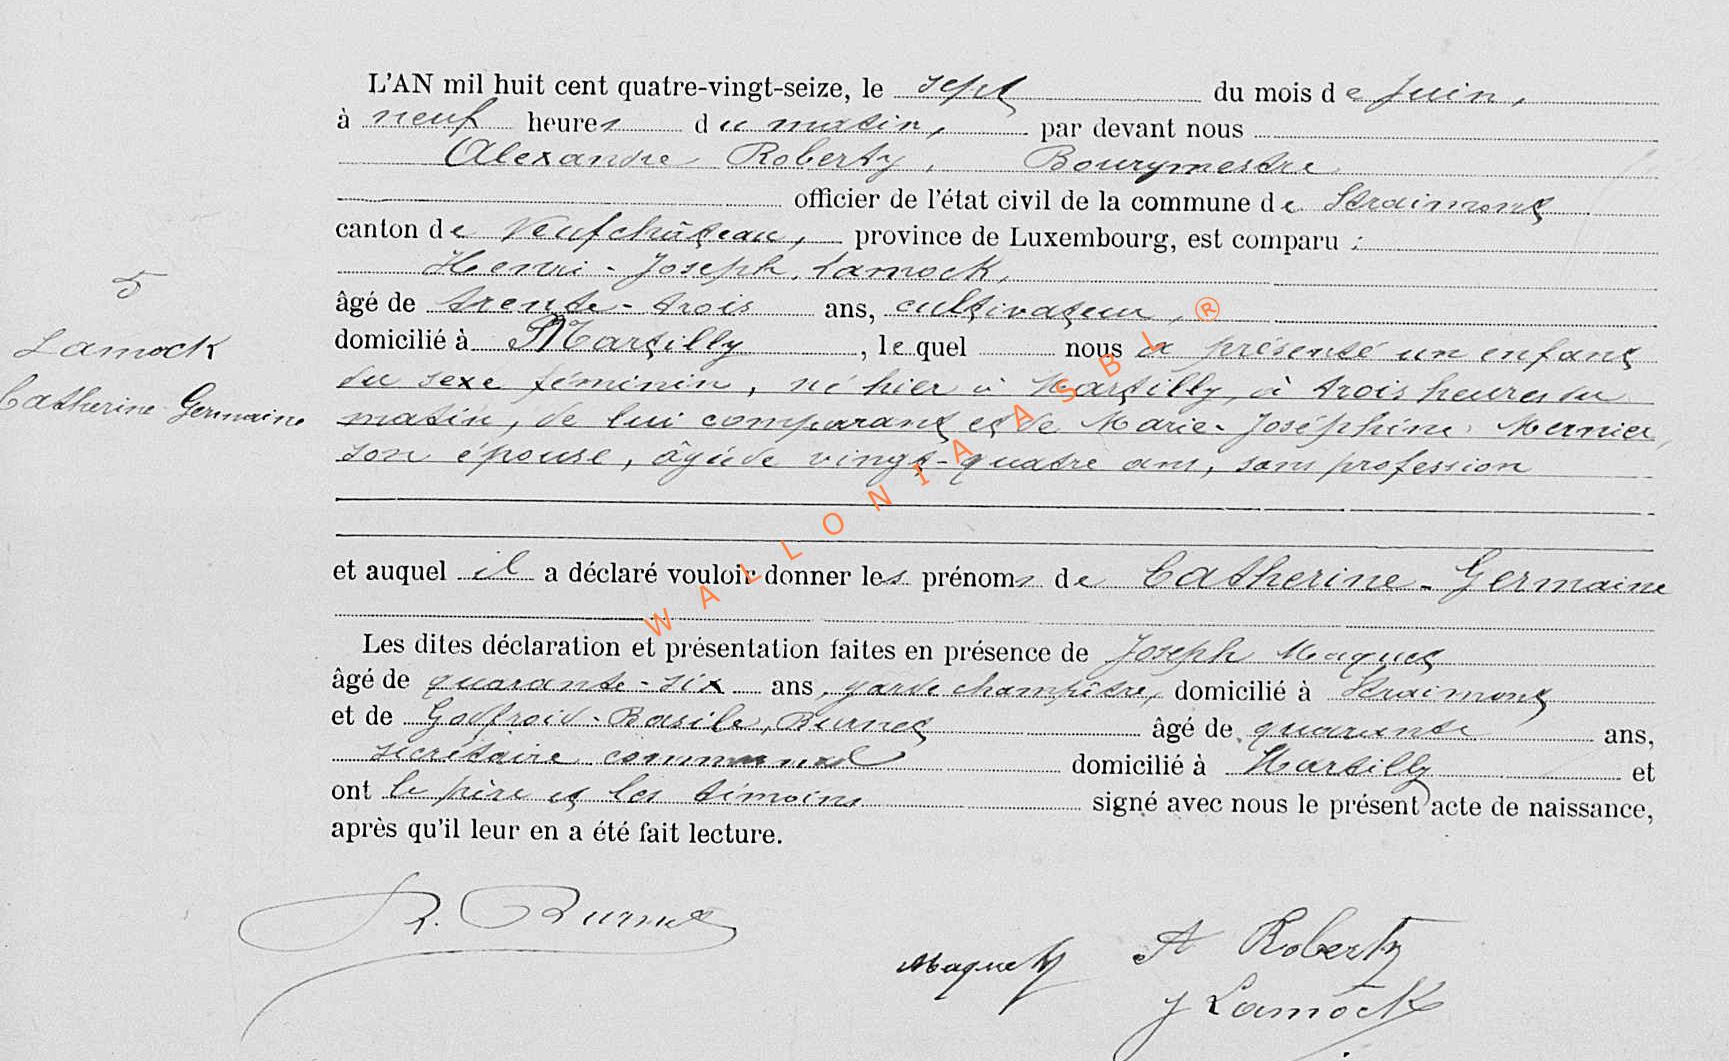 L'AN mil huit cent quatre-vingt-seize, le sept du mois de Juin,
à neuf heures du matin, par devant nous
Alexandre Roberty, Bourgmestre
officier de l'état civil de la commune de Straimont
canton de Neufchâteau, province de Luxembourg, est comparu :
Henri-Joseph Lamock,
âgé de trente-trois ans, cultivateur,
domicilié à Martilly, lequel nous a présenté un enfant
du sexe féminin, né hier à Martilly, à trois heures du
matin, de lui comparant et de Marie-Joséphine Mernier,
son épouse, âgée de vingt-quatre ans, sans profession
et auquel il a déclaré vouloir donner les prénoms de Catherine-Germaine
Les dites déclaration et présentation faites en présence de Joseph Maquet
âgé de quarante-six ans, garde champêtre, domicilié à Straimont
et de Godfroid-Basile, Burnet âgé de quarante ans,
secrétaire communal domicilié à Martilly et
ont le père et les témoins signé avec nous le présent acte de naissance,
après qu'il leur en a été fait lecture.
5
Lamock
Catherine Germaine
B. Burnet
Maquet
A Roberty
J Lamock
WALLONIA ASBL ®